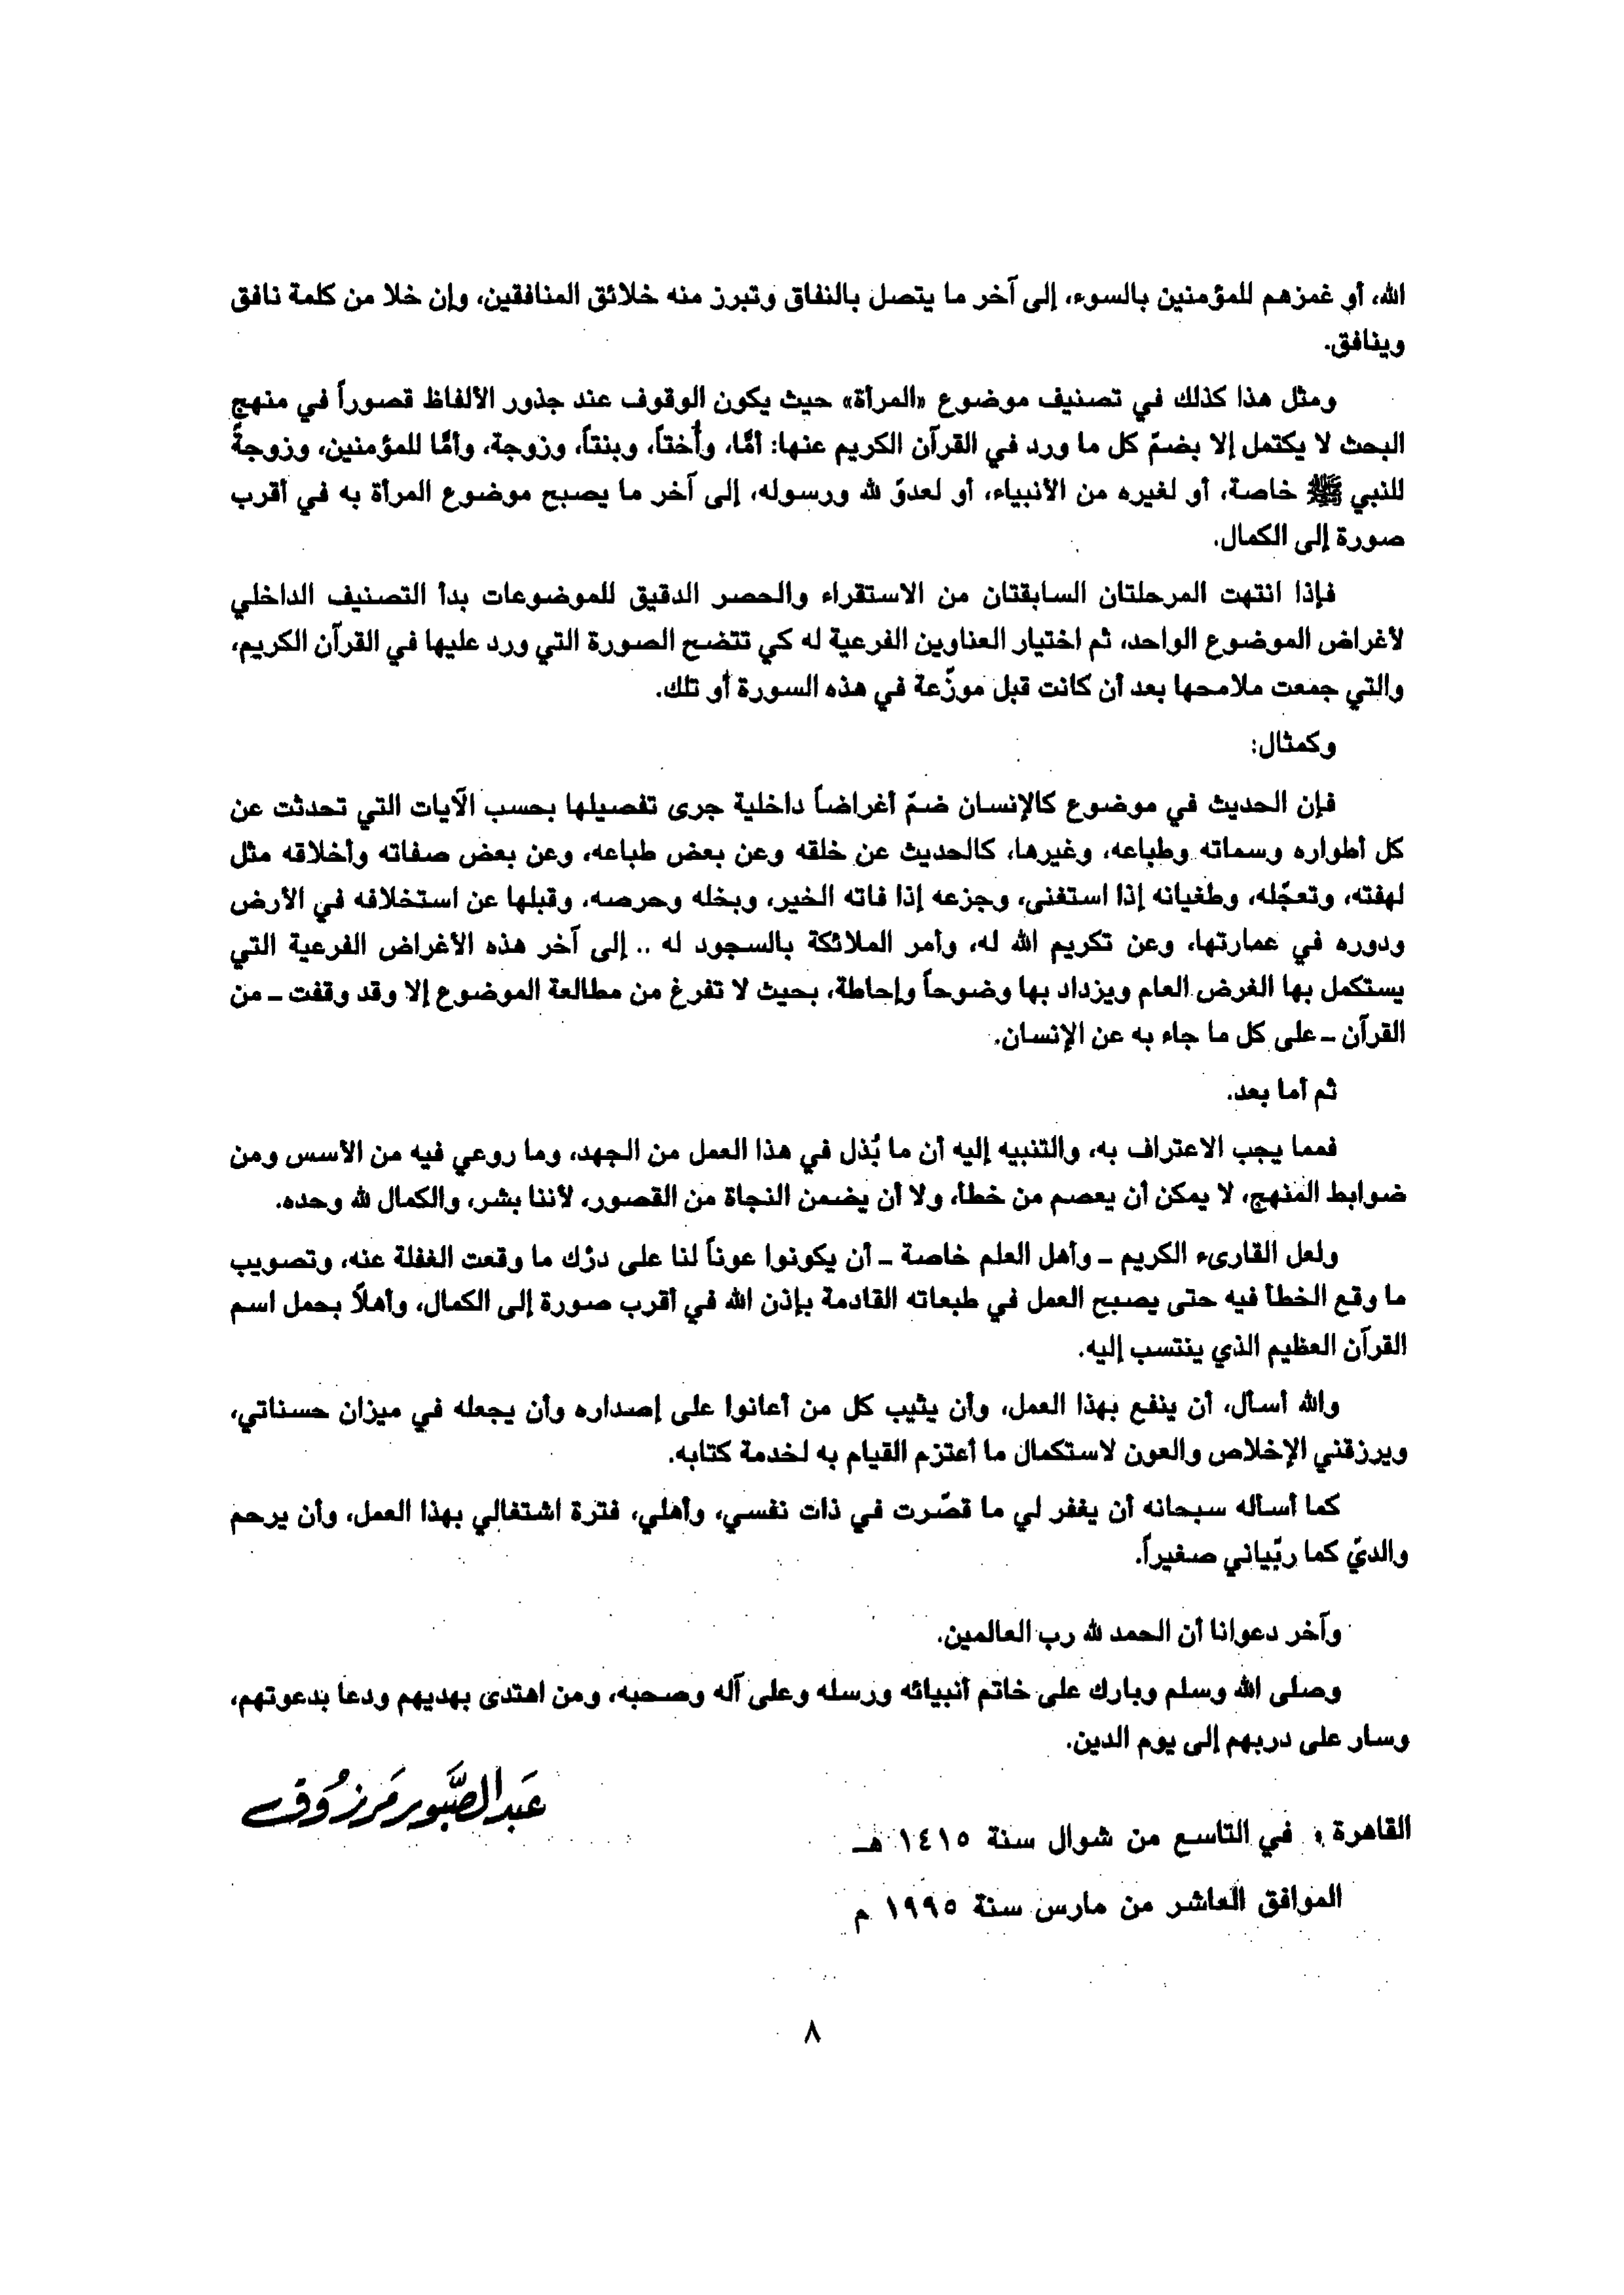 الله، أو غمزهم للمؤمنين بالسوء، إلى آخر ما يتصل بالنفاق وتبرز منه خلائق المنافقين، وإن خلا من كلمة نافق
وينافق.
ومثل هذا كذلك في تصنيف موضوع «المرأة» حيث يكون الوقوف عند جذور الألفاظ قصوراً في منهج
البحث لا يكتمل إلا بضمّ كل ما ورد في القرآن الكريم عنها: أمًّا، وأُختاً، وبنتاً، وزوجة، وأمًّا للمؤمنين، وزوجةً
للنبي ﷺ خاصة، أو لغيره من الأنبياء، أو لعدوّ لله ورسوله، إلى آخر ما يصبح موضوع المرأة به في أقرب
صورة إلى الكمال.
فإذا انتهت المرحلتان السابقتان من الاستقراء والحصر الدقيق للموضوعات بدأ التصنيف الداخلي
لأغراض الموضوع الواحد، ثم اختيار العناوين الفرعية له كي تتضح الصورة التي ورد عليها في القرآن الكريم،
والتي جمعت ملامحها بعد أن كانت قبل موزّعة في هذه السورة أو تلك.
وكمثال:
فإن الحديث في موضوع كالإنسان ضمّ أغراضاً داخلية جرى تفصيلها بحسب الآيات التي تحدثت عن
كل أطواره وسماته وطباعه، وغيرها، كالحديث عن خلقه وعن بعض طباعه، وعن بعض صفاته وأخلاقه مثل
لهفته، وتعجّله، وطغيانه إذا استغنى، وجزعه إذا فاته الخير، وبخله وحرصه. وقبلها عن استخلافه في الأرض
ودوره في عمارتها، وعن تكريم الله له، وأمر الملائكة بالسجود له .. إلى آخر هذه الأغراض الفرعية التي
يستكمل بها الغرض العام ويزداد بها وضوحاً وإحاطة، بحيث لا تفرغ من مطالعة الموضوع إلا وقد وقفت ـ من
القرآن ـ على كل ما جاء به عن الإنسان.
ثم أما بعد.
فمما يجب الاعتراف به، والتنبيه إليه أن ما بُذل في هذا العمل من الجهد، وما روعي فيه من الأسس ومن
ضوابط المنهج، لا يمكن أن يعصم من خطأ، ولا أن يضمن النجاة من القصور، لأننا بشر، والكمال لله وحده.
ولعل القارىء الكريم ـ وأهل العلم خاصة ـ أن يكونوا عوناً لنا على درْك ما وقعت الغفلة عنه، وتصويب
ما وقع الخطأ فيه حتى يصبح العمل في طبعاته القادمة بإذن الله في أقرب صورة إلى الكمال، وأهلاً بحمل اسم
القرآن العظيم الذي ينتسب إليه.
والله أسأل، أن ينفع بهذا العمل، وأن يثيب كل من أعانوا على إصداره وأن يجعله في ميزان حسناتي،
ويرزقني الإخلاص والعون لاستكمال ما أعتزم القيام به لخدمة كتابه.
كما أسأله سبحانه أن يغفر لي ما قصّرت في ذات نفسي، وأهلي، فترة اشتغالي بهذا العمل، وأن يرحم
والديّ كما ربّياني صغيراً.
وآخر دعوانا أن الحمد لله رب العالمين.
وصلى الله وسلم وبارك على خاتم أنبيائه ورسله وعلى آله وصحبه، ومن اهتدى بهديهم ودعا بدعوتهم،
وسار على دربهم إلى يوم الدين.
عَبد الصَّبور مَرزُوق
القاهرة ، في التاسع من شوال سنة ١٤١٥ هـ
الموافق العاشر من مارس سنة ١٩٩٥ م
٨